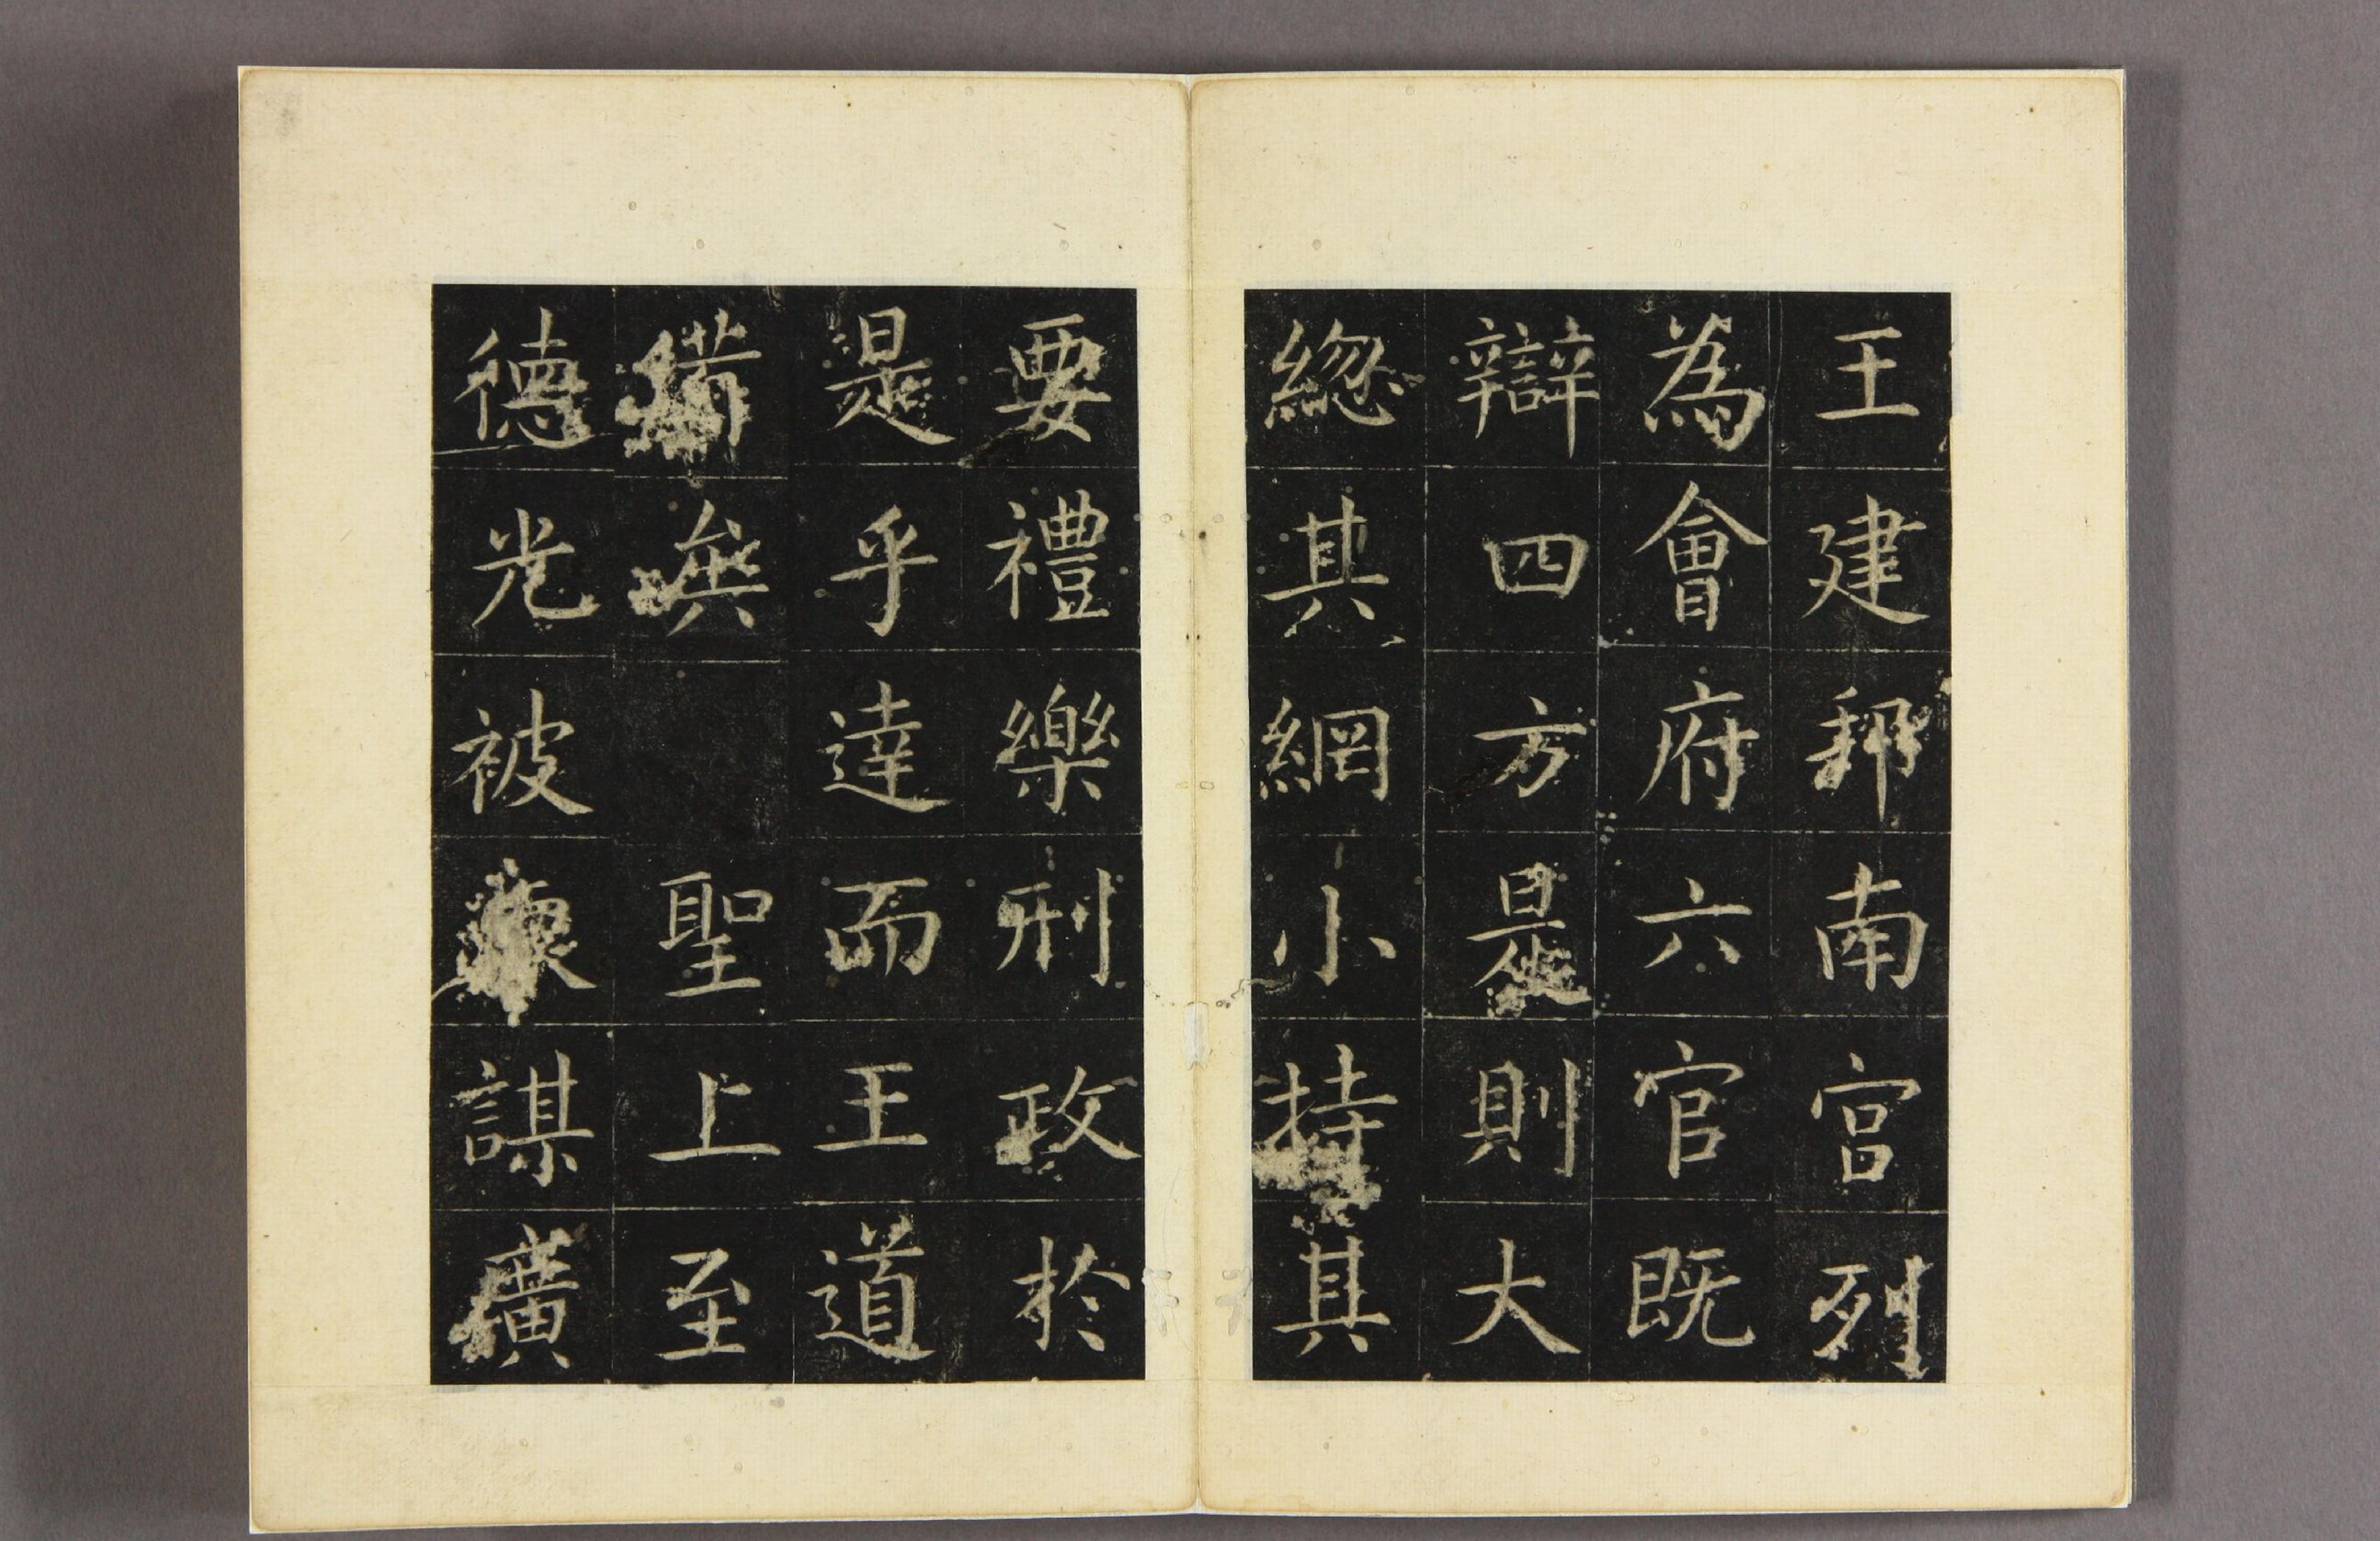 王建邦南宮列
為會府六官既
辯四方是則大
緫其綱小持其
要禮樂刑政於
是乎達而王道
備矣 聖上至
德光被懷謀廣